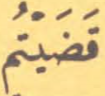 قَضَيْتُم